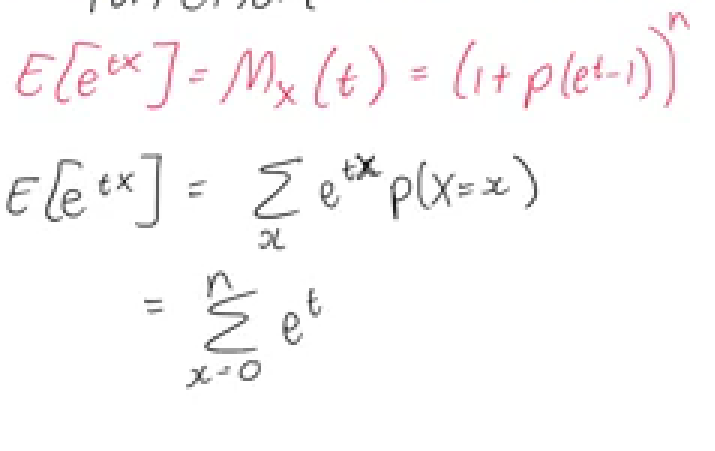 E[e^{tx}] = M_x(t) = (1 + p(e^t - 1))^n
E[e^{tx}] = ∑_x e^{tx} p(X = x)
= ∑_{x=0}^{n} e^t